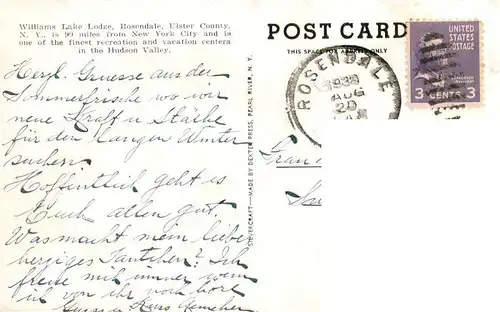 Williams Lake Lodze, Rosendale, Ulster County,
N. Y., is 90 miles from New York City and is
one of the finest recreation and vacation centers
in the Hudson Valley.
Herzl. Gruesse aus der
Sommerfrische wo wir
neue Kraft u Stärke
für den langen Winter
suchen
Hoffentlich geht es
Euch allen gut.
Was macht mein lieber
herziges Tantchen? Ich
freue mich immer wenn
ich von ihr hore
Gruss u Kuss
SILVERCRAFT—MADE BY DEXTER PRESS, PEARL RIVER, N. Y.
POST CARD
THIS SPACE FOR ADDRESS ONLY
ROSENDALE
AUG
20
UNITED STATES
POSTAGE
3 CENTS 3